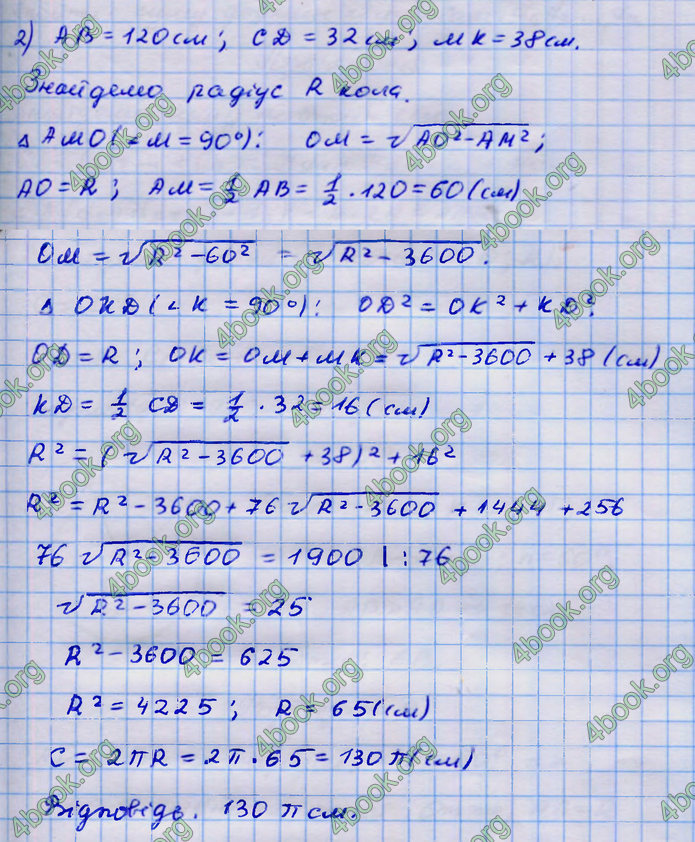 2) AB = 120 см; CD = 32 см; MK = 38 см.
Знайдемо радіус R кола.
Δ AMO (∠M = 90°): OM = √(AO² - AM²);
AO = R; AM = 1/2 AB = 1/2 · 120 = 60 (см)
OM = √(R² - 60²) = √(R² - 3600).
Δ OKD (∠K = 90°): OD² = OK² + KD².
OD = R; OK = OM + MK = √(R² - 3600) + 38 (см)
KD = 1/2 CD = 1/2 · 32 = 16 (см)
R² = (√(R² - 3600) + 38)² + 16²
R² = R² - 3600 + 76 √(R² - 3600) + 1444 + 256
76 √(R² - 3600) = 1900 | : 76
√(R² - 3600) = 25
R² - 3600 = 625
R² = 4225; R = 65 (см)
C = 2πR = 2π · 65 = 130 π (см)
Відповідь. 130 π см.
4book.org